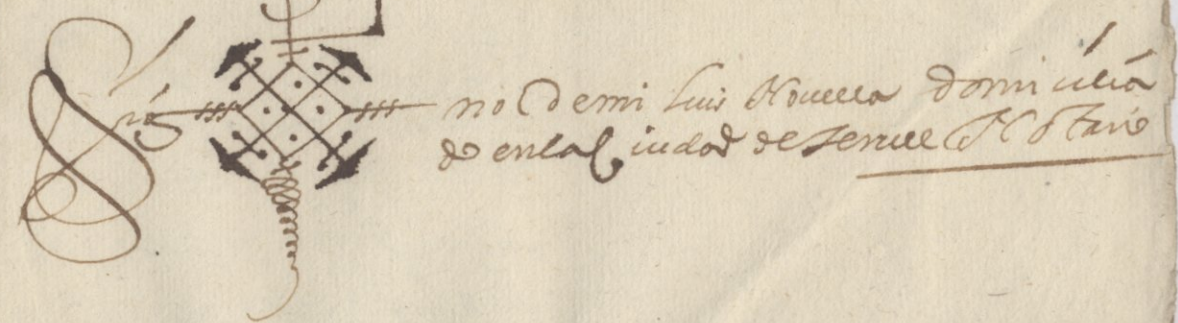 Sig no de mi Luis Novella domicilia
do en la Ciudad de Teruel Notario